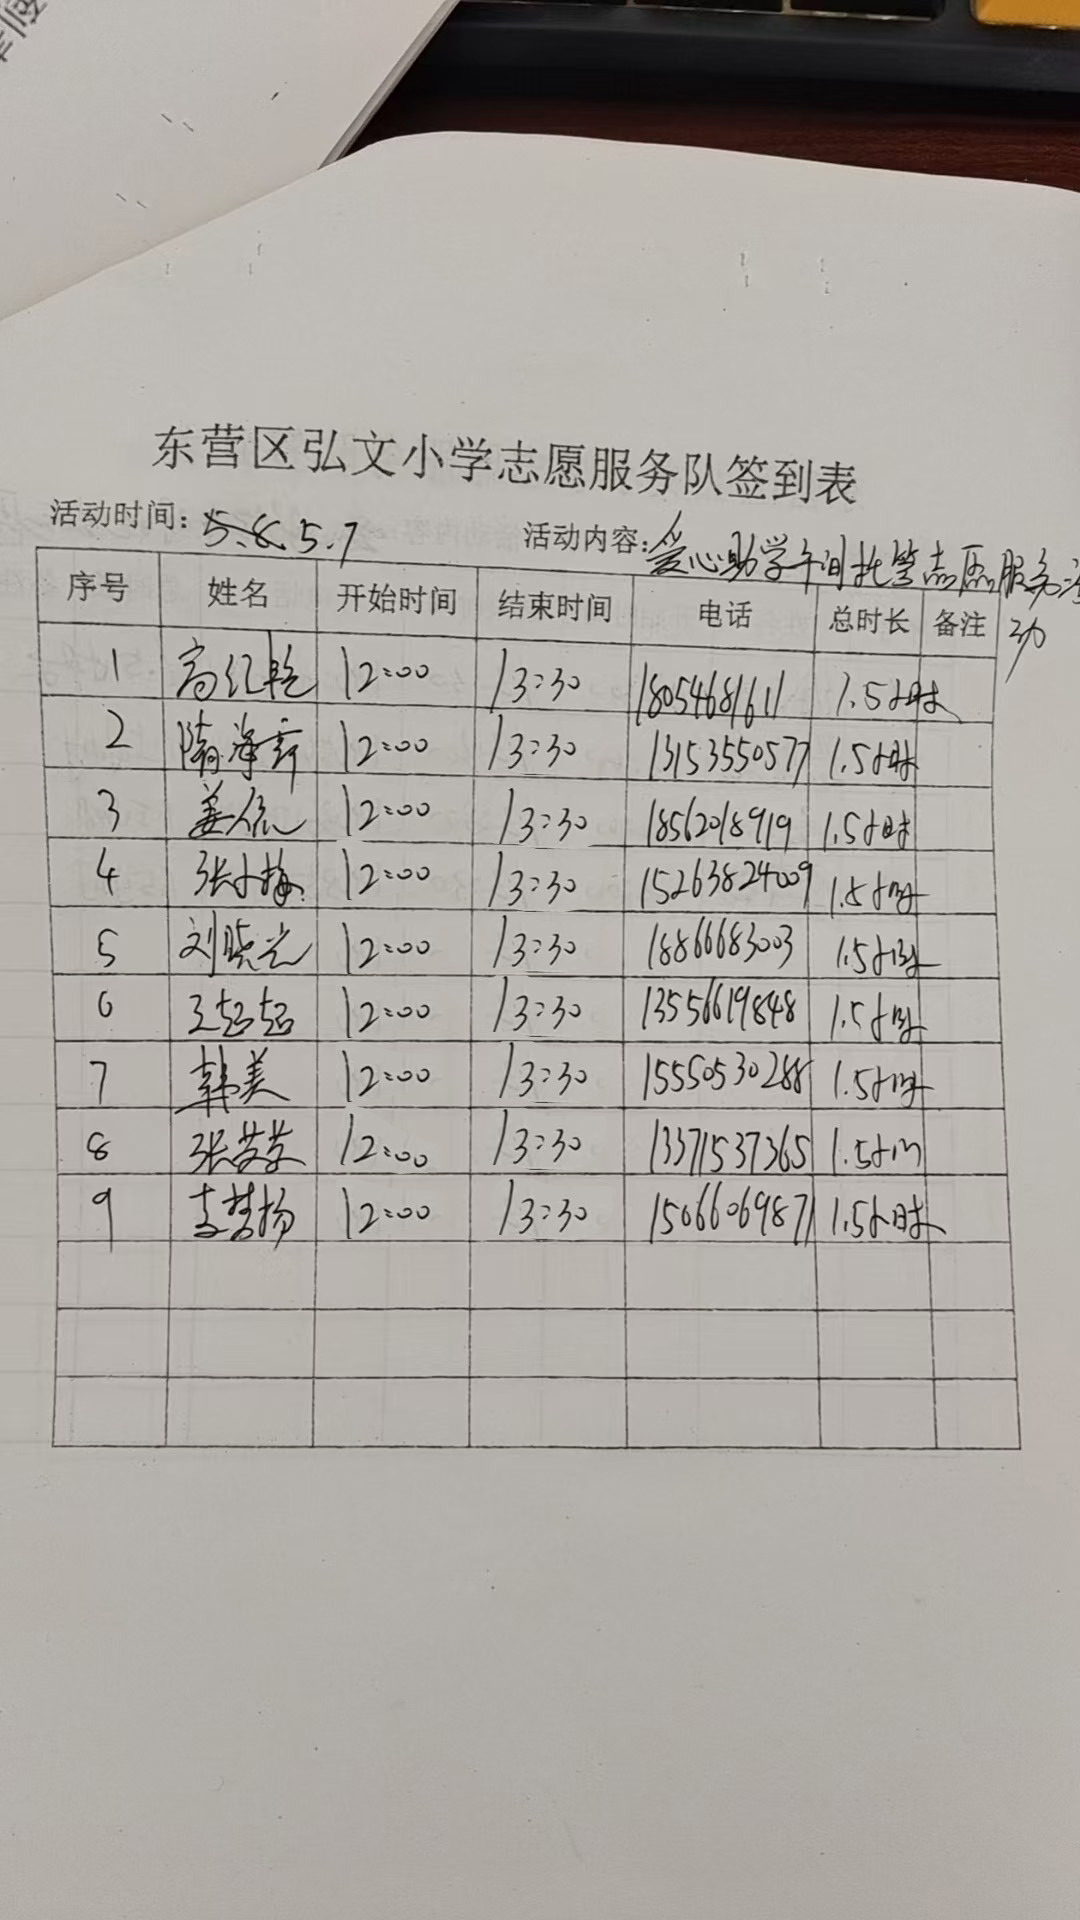 东营区弘文小学志愿服务队签到表
活动时间: 5.8. 5.7 活动内容: 爱心助学午间托管志愿服务活动
序号 姓名 开始时间 结束时间 电话 总时长 备注
1 高红艳 12:00 13:30 18054681611 1.5小时
2 隋海霞 12:00 13:30 13153550577 1.5小时
3 姜 12:00 13:30 18562018919 1.5小时
4 张小梅 12:00 13:30 15263824009 1.5小时
5 刘晓光 12:00 13:30 18866683003 1.5小时
6 王超超 12:00 13:30 13556619848 1.5小时
7 韩美 12:00 13:30 15550530288 1.5小时
8 张苶苶 12:00 13:30 13371537365 1.5小时
9 支梦扬 12:00 13:30 15066069871 1.5小时